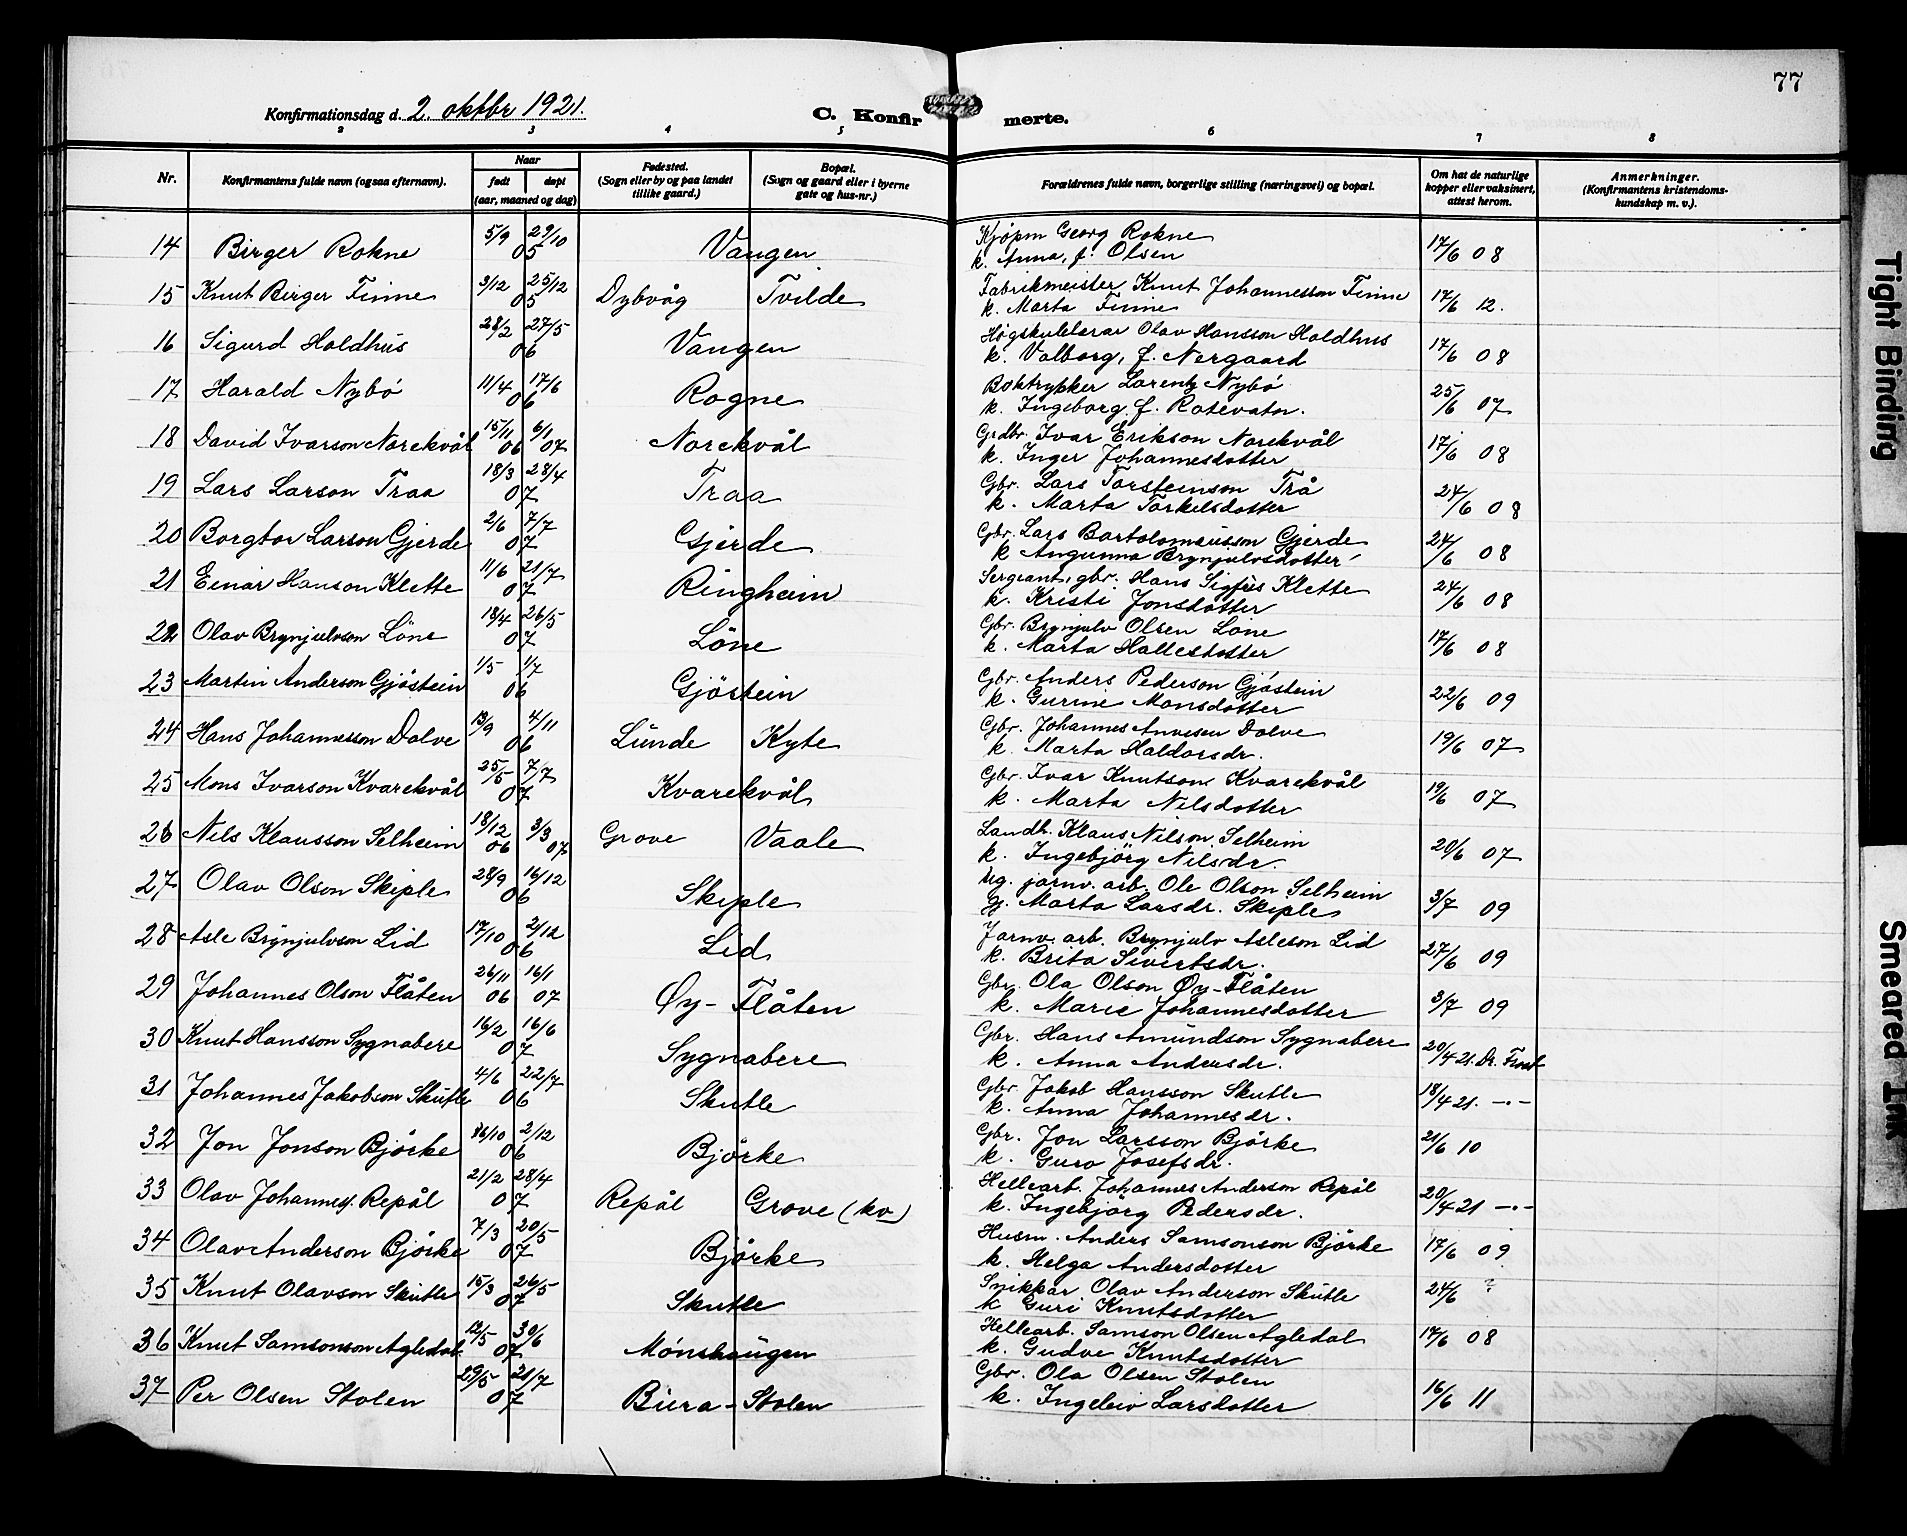 77
Konfirmationsdag d. 2. oktbr 1921.
C. Konfirmerte.
2 3 4 5 6 7 8
Nr. | Konfirmantens fulde navn (ogsaa efternavn). | Naar født døpt (aar, maaned og dag) | Fødested. (Sogn eller by og paa landet tillike gaard.) | Bopæl. (Sogn og gaard eller i byerne gate og hus-nr.) | Forældrenes fulde navn, borgerlige stilling (næringsvei) og bopæl. | Om hat de naturlige kopper eller vaksinert, attest herom. | Anmerkninger. (Konfirmantens kristendomskundskap m. v.).
14 Birger Rokne 5/9 29/10 05 Vangen Kjøpm Georg Rokne 17/6 08
k. Anna, f. Olsen
15 Knut Birger Finne 3/12 25/12 05 Dybvåg Tvilde Fabrikmeister Knut Johannesson Finne 17/6 12.
k. Marta Finne
16 Sigurd Holdhus 28/2 27/5 06 Vangen Høgskulelærar Olav Hansson Holdhus 17/6 08
k. Valborg, f. Nergaard
17 Harald Nybö 11/4 17/6 06 Rogne Boktrykker Larentz Nybö 25/6 07
k. Ingeborg f. Rotevatn.
18 David Ivarson Norekvål 15/11 06 6/1 07 Norekvål Grdbr. Ivar Erikson Norekvål 17/6 08
k. Inger Johannesdotter
19 Lars Larson Traa 18/3 28/4 07 Traa Gbr. Lars Torsteinson Trå 24/6 08
k. Marta Torkelsdotter
20 Borgtor Larson Gjerde 2/6 7/7 07 Gjerde Gbr. Lars Bartolomeusson Gjerde 24/6 08
k Angunna Brynjulvsdotter
21 Einar Hanson Klette 11/6 21/7 07 Ringheim Sergeant, gbr. Hans Sigfus Klette 24/6 08
k. Kristi Jonsdotter
22 Olav Brynjulvson Löne 18/4 26/5 07 Löne Gbr. Brynjulv Olsen Löne 17/6 08
k. Marta Hallesdotter
23 Martin Anderson Gjöstein 1/5 1/7 06 Gjöstein Gbr. Anders Pederson Gjöstein 22/6 09
k. Gurine Monsdotter
24 Hans Johannesson Dolve 13/9 4/11 06 Lunde Kyte Gbr. Johannes Dolve 19/6 07
k. Marta Haldorsdr.
25 Mons Ivarson Kvarekvål 25/5 7/7 07 Kvarekvål Gbr. Ivar Knutson Kvarekvål 19/6 07
k. Marta Nilsdotter
26 Nils Klausson Selheim 18/12 06 3/3 07 Grove Vaale Landh. Klaus Nilson Selheim 20/6 07
k. Ingebjörg Nilsdr.
27 Olav Olson Skiple 28/9 16/12 06 Skiple Ug. jarnv. arb. Ole Olson Selheim 3/7 09
g. Marta Larsdr. Skiple
28 Asle Brynjulvson Lid 17/10 2/12 06 Lid Jarnv. arb. Brynjulv Asleson Lid 27/6 09
k. Brita Sivertsdr.
29 Johannes Olson Flåten 26/11 06 16/1 07 Øy-Flåten Gbr. Ola Olson Øy-Flåten 3/7 09
k. Marie Johannesdotter
30 Knut Hansson Sygnabere 16/2 16/6 07 Sygnabere Gbr. Hans Amundson Sygnabere 20/4 21. Dr. Frost
k. Anna Andersdr.
31 Johannes Jakobson Skutle 4/6 22/7 06 Skutle Gbr. Jakob Hansson Skutle 18/4 21. -.-
k. Anna Johannesdr.
32 Jon Jonson Björke 16/10 2/12 06 Björke Gbr. Jon Larsson Björke 21/6 10
k. Guro Josefsdr.
33 Olav Johannes. Repål 21/2 28/4 07 Repål Grove (kv) Hellearb. Johannes Anderson Repål 20/4 21 -.-
k. Ingebjörg Pedersdr.
34 Olav Anderson Björke 7/3 20/5 07 Björke Husm. Anders Samsonson Björke 17/6 09
k. Helga Andersdotter
35 Knut Olavson Skutle 15/3 26/5 07 Skutle Snikkar Olav Anderson Skutle 24/6 ?
k Guri Knutsdotter
36 Knut Samsonson Agledal 12/5 30/6 07 Mönshaugen Hellearb. Samson Olsen Agledal 17/6 08
k. Gudve Knutsdotter
37 Per Olsen Stolen 29/5 21/7 07 Biera-Stolen Gbr. Ola Olsen Stolen 16/6 11
k. Ingeleiv Larsdotter
Tight Binding
Smeared Ink